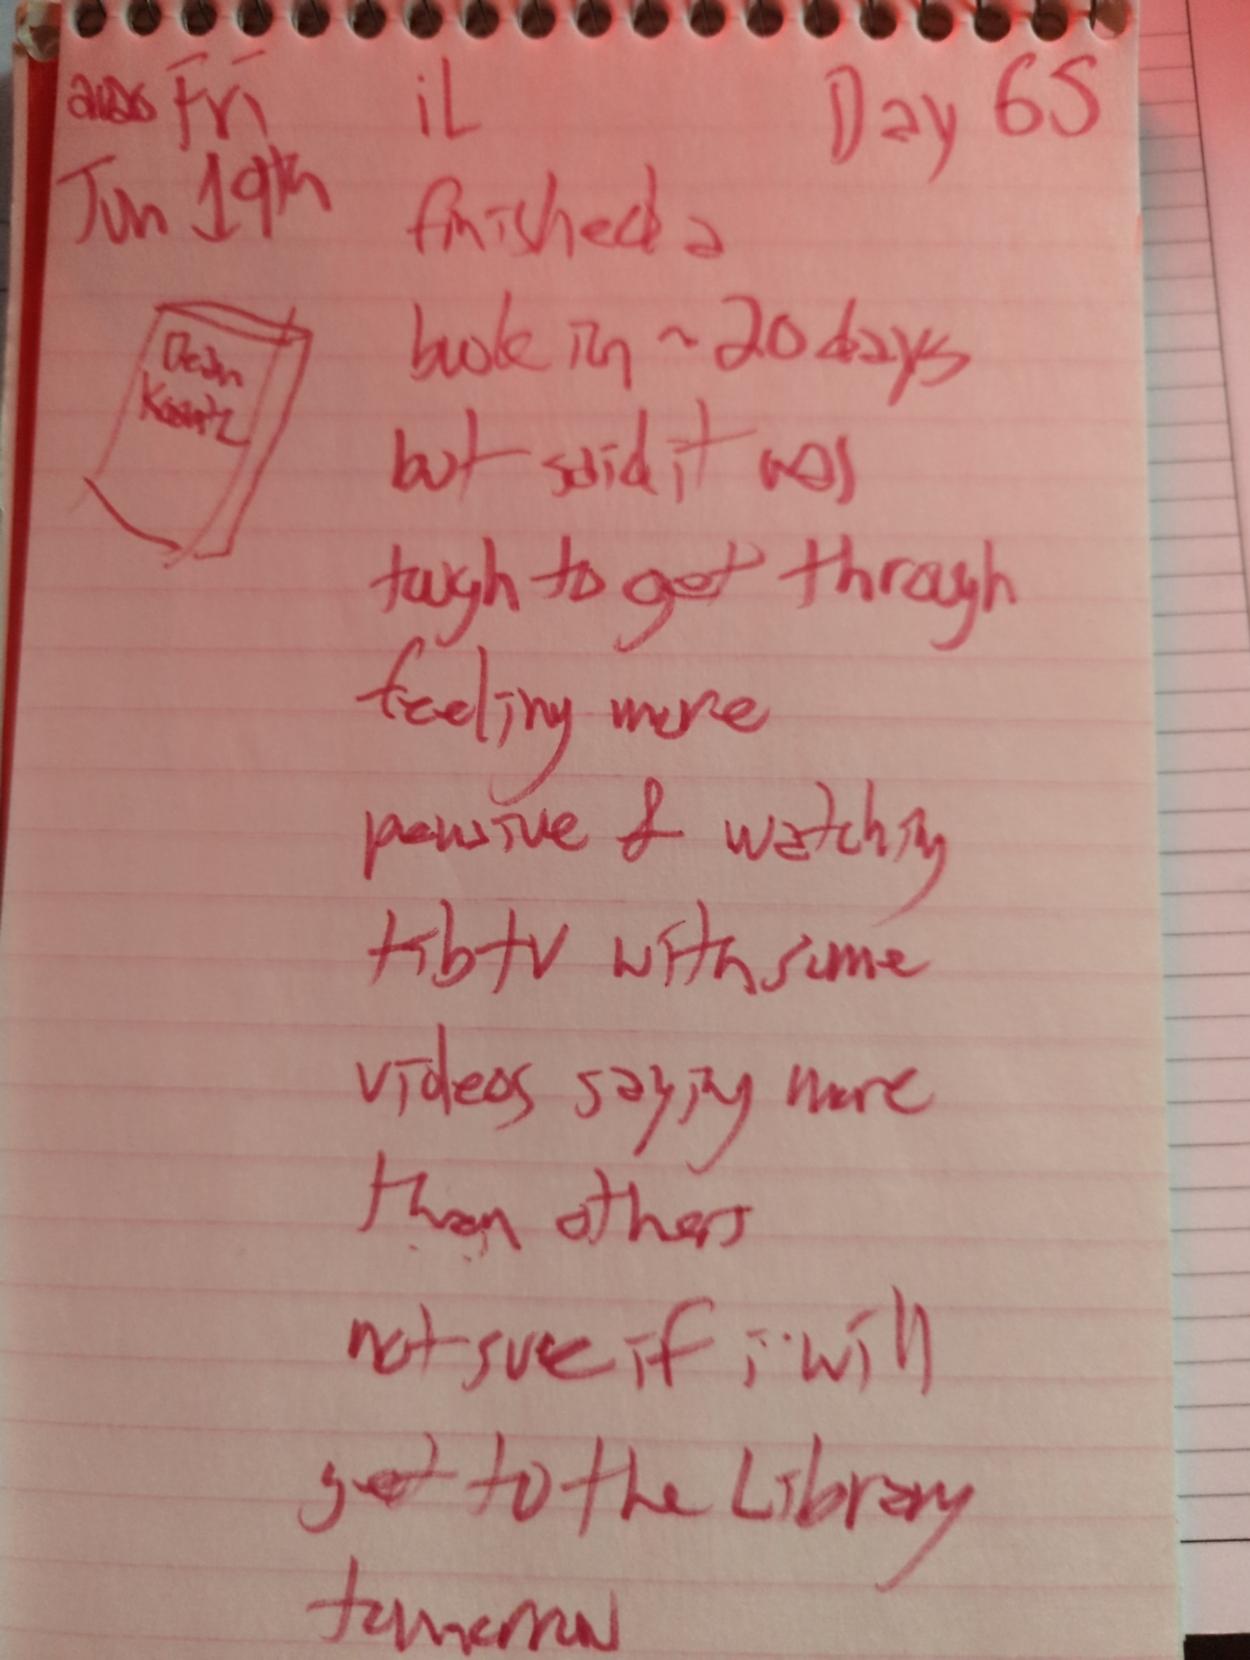 Fri iL Day 65
Jun 19th finished a
Dean
Koontz
book in ~20 days
but said it was
tough to get through
feeling more
pensive & watching
tibtv with some
videos saying more
than others
not sure if i will
get to the Library
tomorrow